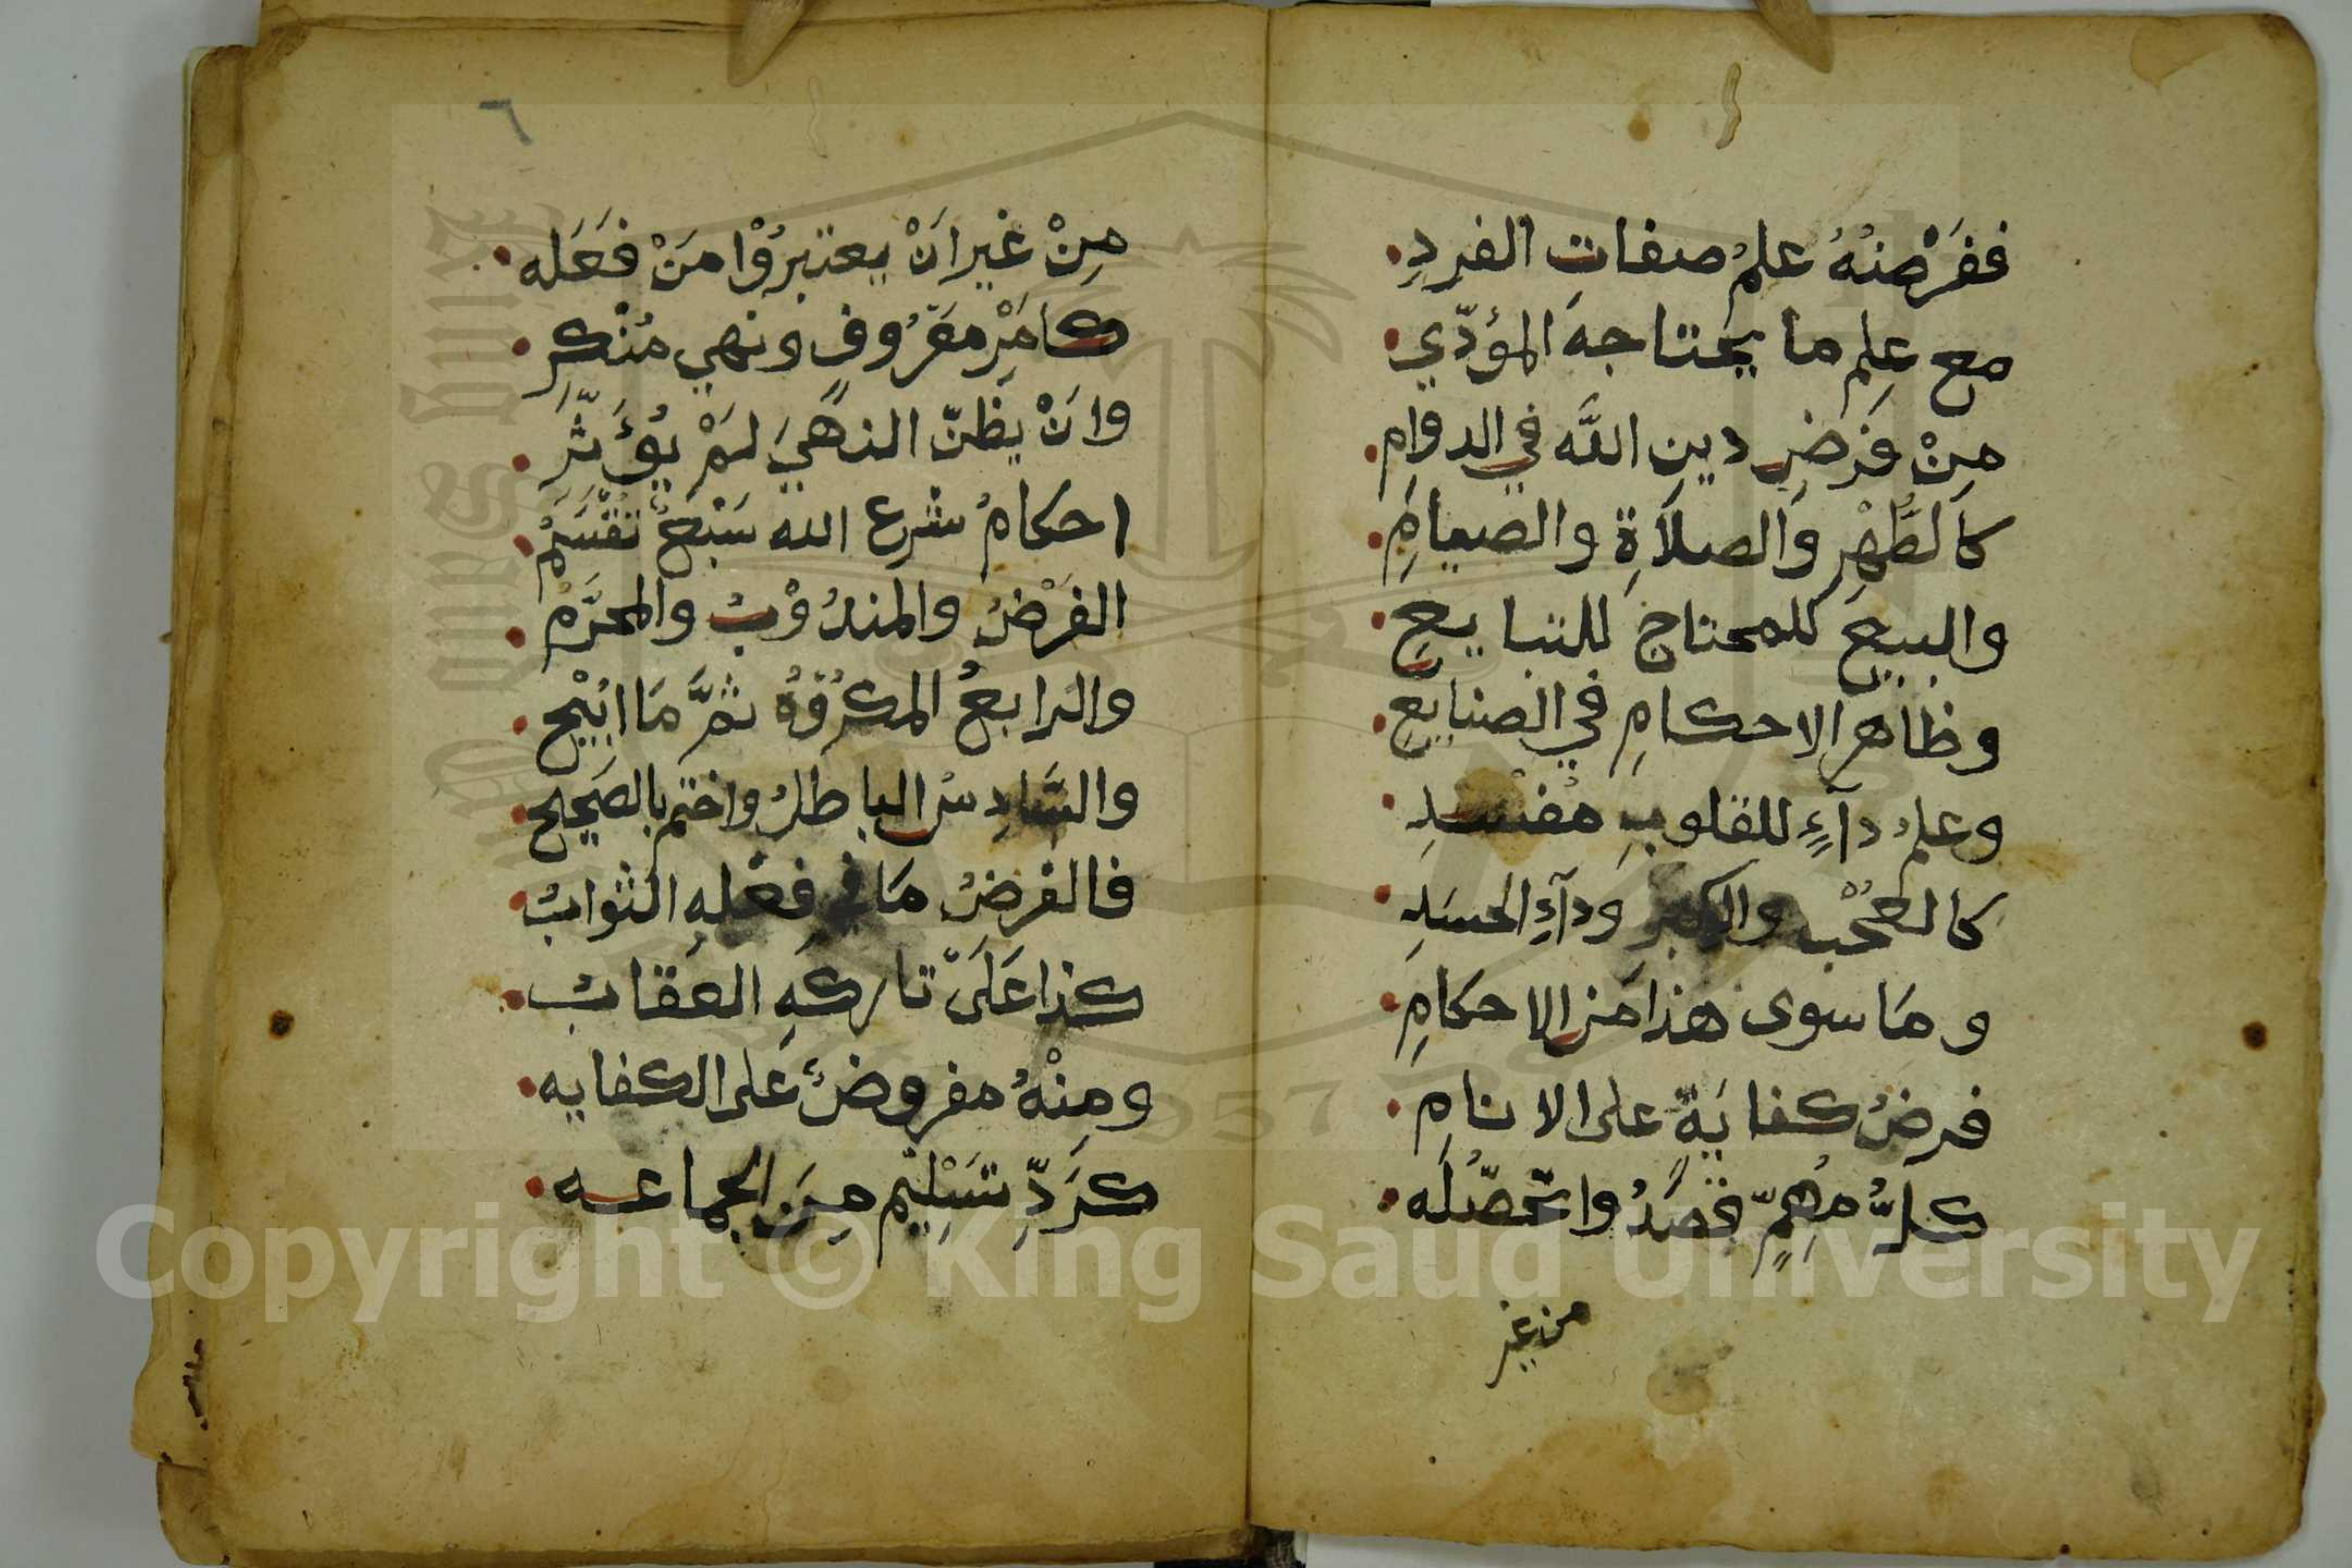 ففَرْضُهُ علمُ صفاتِ الفردِ
مع عِلمِ ما يحتاجهَ المؤدّي
مِنْ فَرْضِ دينِ اللّه في الدوامِ
كالطُّهْرِ والصلاَةِ والصيامِ
والبيعِ للمحتاج للتبايعِ
وظاهرِ الاحكامِ في الصنايعِ
وعلمُ دآءٍ للقلوبِ مُفْسدِ
كالعُجْب والكبرِ ودآءِ الحسَدِ
ومَا سوى هذا مَن الاحكامِ
فرضُ كفايَةٍ على الانامِ
كلُّ مُهِمٍّ قصَدُوا تحصّلَه
من غير
٦
مِنْ غيرِ اَنْ يعتبرُوْا مَنْ فعَلَه
كامَرْ معَرُوفٍ ونهي مُنْكرِ
واَنْ يظنّ النهْيَ لمَْ يُؤَثّرِ
احكامُ شرع الله سَبْعٌ تقْسَمُ
الفَرْضُ والمندُوْبُ والمحرَّمُ
والرابعُ المكرُوُهُ ثمَّ مَا اُبيْح
والسَّادِسُ الباطلُ واختم بالصَحيح
فالفرضُ مَا في فِعْلهِ الثوابُ
كذا عَلَىَ تاركهِ العقابُ
ومِنْهُ مفروضٌ عَلى الكفايه
كرَدِّ تسَلِيْم مِنَ الجماعه
Copyright © King Saud University